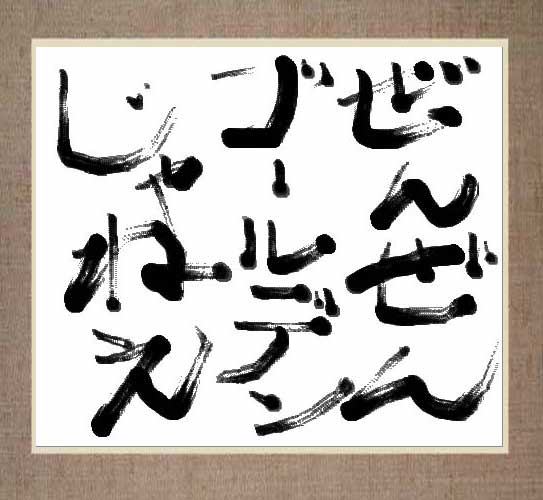 ぜんぜん
ゴールデン
じゃねえ